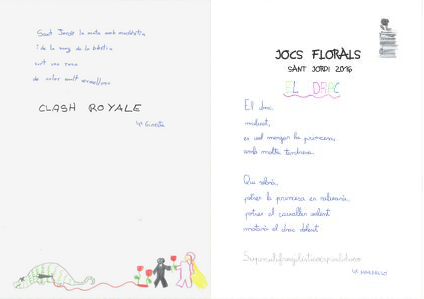 Sant Jordi la mata amb modèstia
i de la sang de la bèstia
surt una rosa
de color molt vermellosa
CLASH ROYALE
4t Ginesta
JOCS FLORALS
SANT JORDI 2016
EL DRAC
El drac
malvat,
es vol menjar la princesa,
amb molta tendresa.
Qui sabrà,
potser la princesa es salvarà,
potser el cavaller valent
matarà el drac dolent.
4t MARGALLÓ